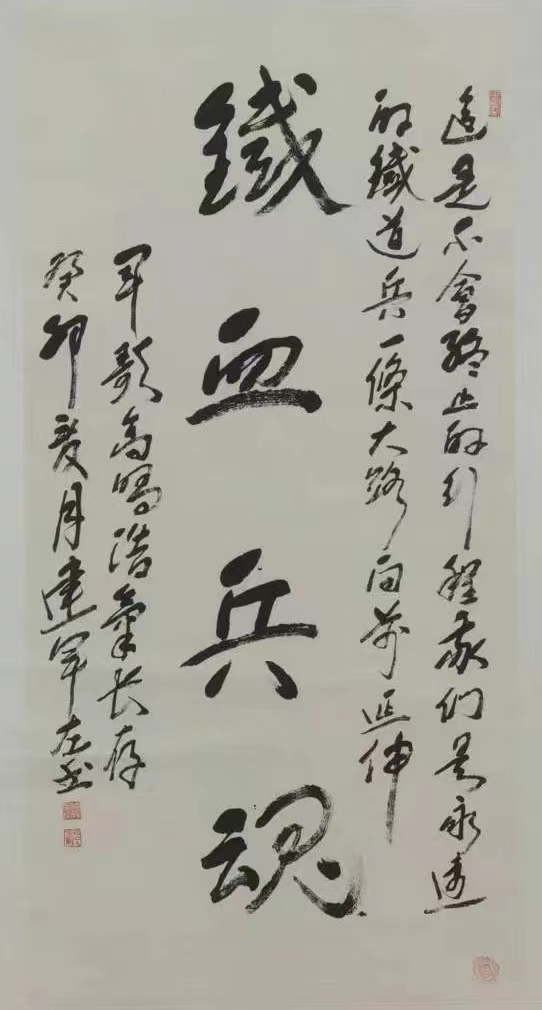 這是不會終止的行程我们是永遠
的鐵道兵一條大路向前延伸
鐵血兵魂
军歌高鳴浩氣长存
癸卯夏月建军左书